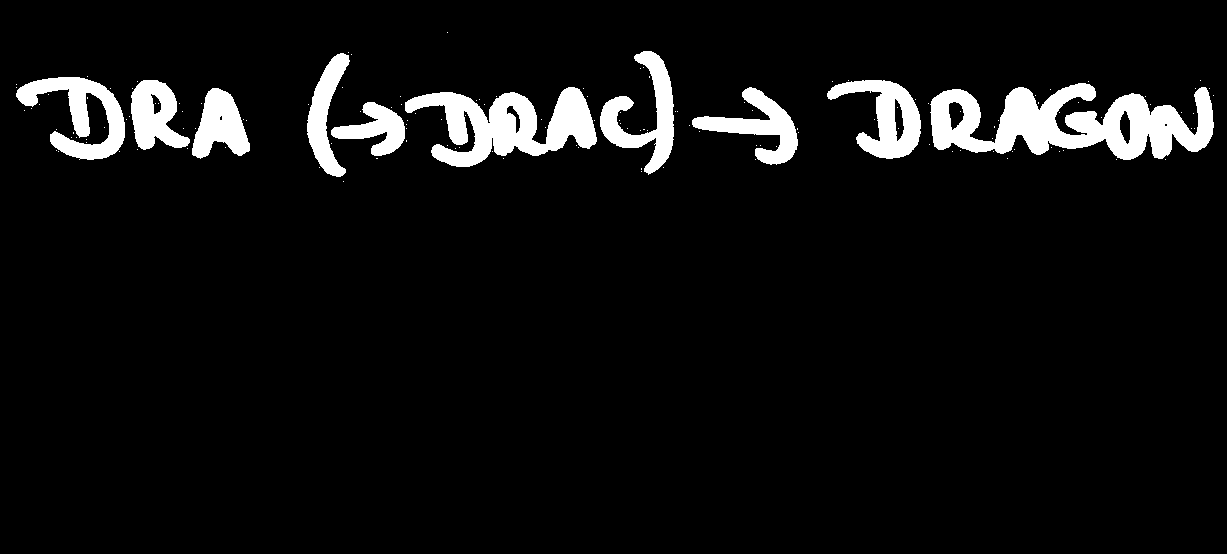 DRA (→DRAC) → DRAGON